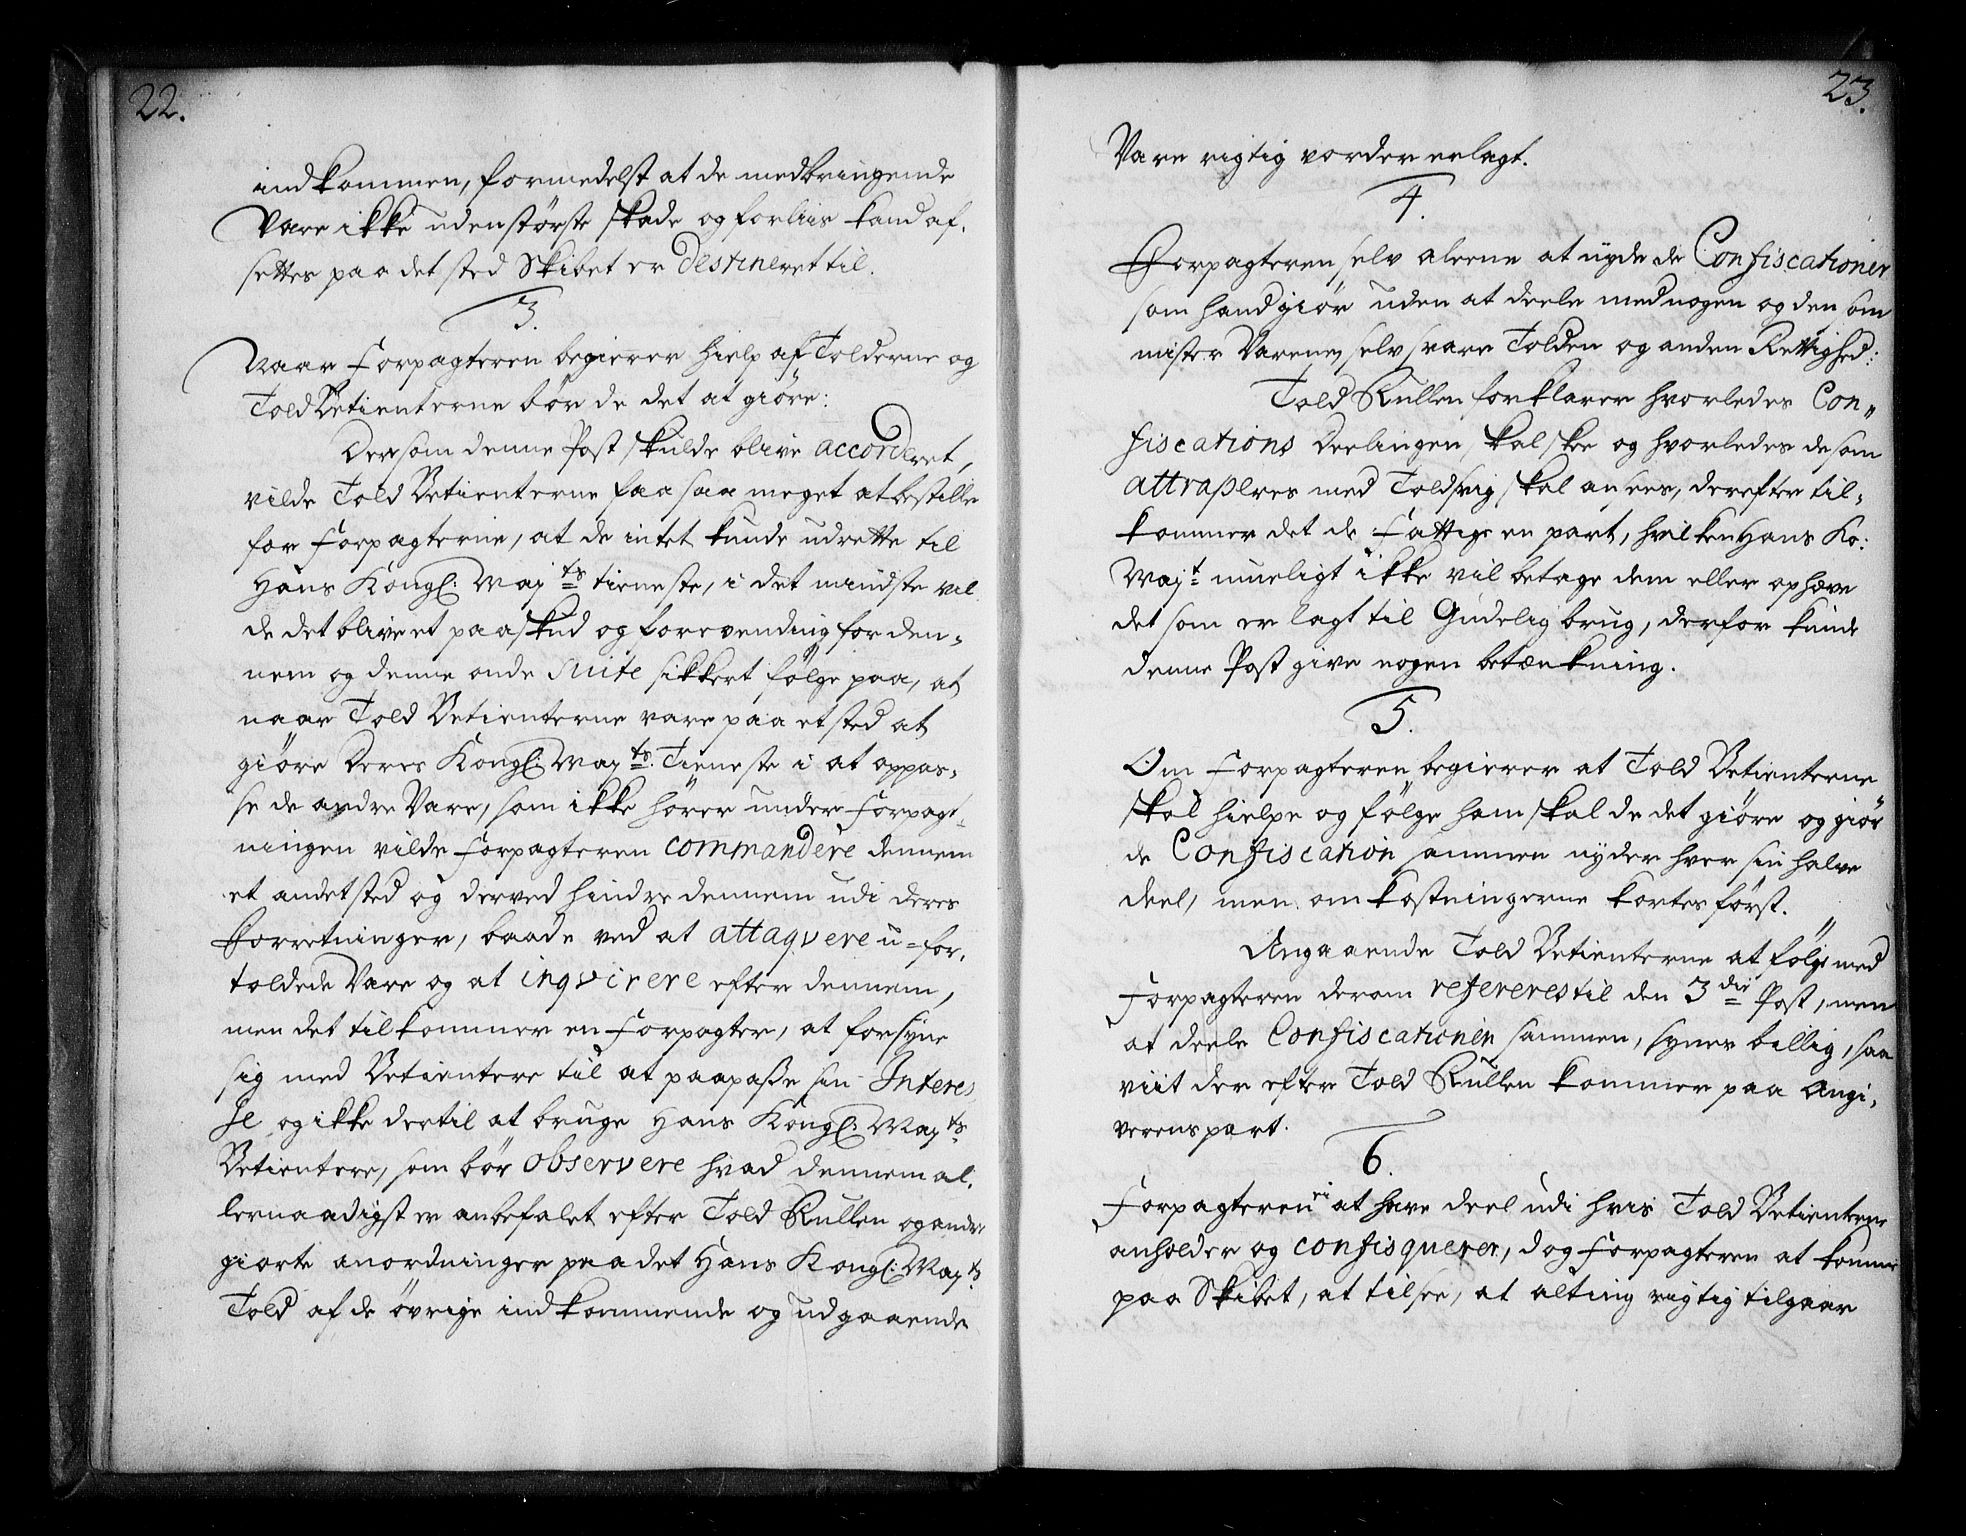 22.
indkommen, formedelst at de medbringende
Vare ikke uden største skade og forliis kand af-
settes paa det sted Skibet er Destineret til.
3.
Naar Forpagteren begierer hielp af Tolderne og
Told Betienterne bør de det at giöre:
Dersom denne Post skulde blive accorderet,
vilde Told Betienterne faa saa meget at bestille
for Forpagterne, at de intet kunde udrette til
Hans Kongl: May ts tieneste, i det mindste vil
de det blive et paaskud og forevending for den-
nem og denne onde Suite sikkert følge paa, at
naar Told Betienterne vare paa et sted at
giöre Deres Kongl: May ts. Tieneste i at oppas-
se de andre Vare, som ikke hører under Forpagt-
ningen vilde Forpagteren commandere dennem
et andet sted og derved hindre dennem udi deres
Forretninger, baade ved at attaqvere u-for-
toldede Vare og at inqvirere efter dennem,
men det tilkommer en Forpagter, at forsyne
sig med Betientere til at paapasse sin Interes
se og ikke dertil at bruge Hans Kongl: May ts
Betientere, som bör observere hvad dennem al-
lernaadigst er anbefalet efter Told Rullen og andre
giorte anordninger paa det Hans Kongl: May ts
Told af de øvrige indkommende og udgaaende
23.
Vare rigtig vorder erlagt.
4.
Forpagteren selv aleene at nyde de Confiscationer
som hand giør uden at deele med nogen og den som
mister Varene, selv svare Tolden og anden Rettighed:
Told Rullen forklarer hvorledes Con-
fiscations Deelingen skal skee og hvorledes de som
attraperes med Toldsvig skal ansees, derefter til-
kommer det de Fattige en part, hvilken Hans Ko:
May t mueligt ikke vil betage dem eller ophæve
det som er lagt til Gudelig brug, derfor kunde
denne Post give nogen betænkning.
5.
Om Forpagteren begierer at Told Betienterne
skal hielpe og følge ham skal de det giöre og giør
de Confiscation sammen nyder hver sin halve
deel, men omkostningerne kortes först.
Angaaende Told Betienterne at følge med
Forpagteren derom refereres til den 3 die Post, men
at deele Confiscationen sammen, synes billig, saa
viit der efter Told Rullen kommer paa Angi-
verens part.
6.
Forpagteren ei at have deel udi hvis Told Betienterne
anholder og confisquerer, dog Forpagteren at komme
paa Skibet, at tilsee, at alting rigtig tilgaar